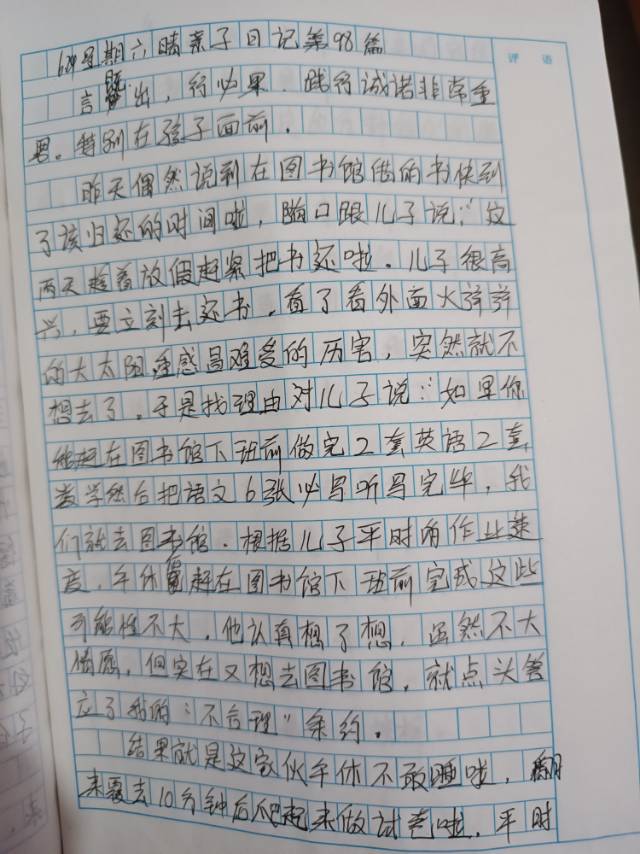 评语
6.29星期六晴亲子日记第98篇
言既出，行必果。践行诚诺非常重
要。特别在孩子面前。
昨天偶然说到在图书馆借的书快到
了该归还的时间啦，随口跟儿子说："这
两天趁着放假赶紧把书还啦。儿子很高
兴，要立刻去还书。看了看外面火辣辣
的大太阳，重感冒难受的厉害，突然就不
想去了。于是找理由对儿子说："如果你
能赶在图书馆下班前做完2套英语2套
数学然后把语文6张必写听写完毕，我
们就去图书馆。根据儿子平时的作业速
度，午休后赶在图书馆下班前完成这些
可能性不大，他认真想了想，虽然不大
情愿，但实在又想去图书馆，就点头答
应了我的"不合理"条约。
结果就是这家伙午休不敢睡啦，翻
来覆去10分钟后爬起来做试卷啦。平时